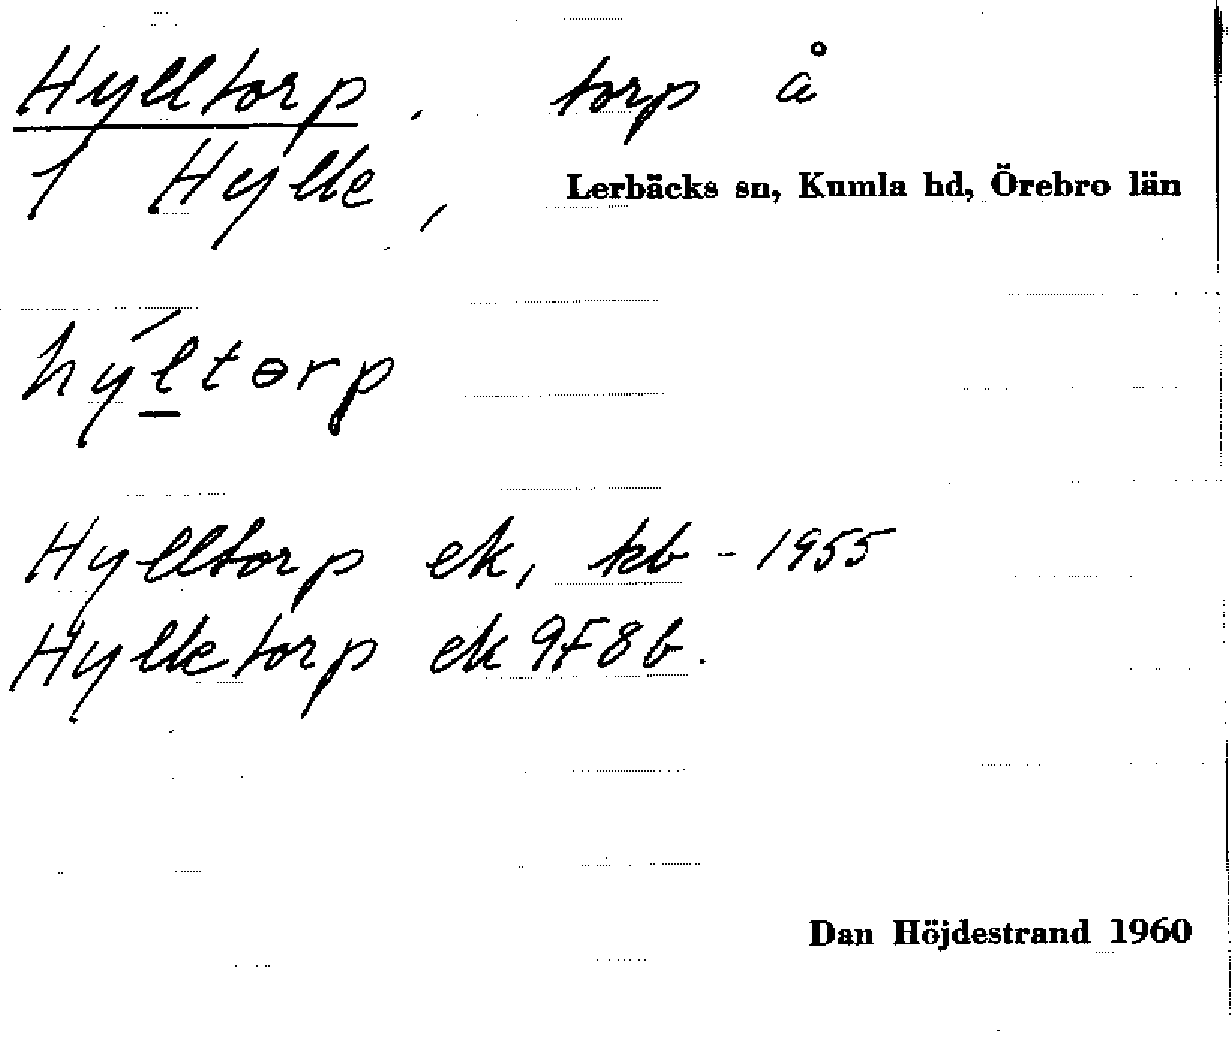 Hylltorp, torp å
1 Hylle,
Lerbäcks sn, Kumla hd, Örebro län
hýltɵrp
Hylltorp ek, kb - 1955
Hylletorp ek 9F8b.
Dan Höjdestrand 1960